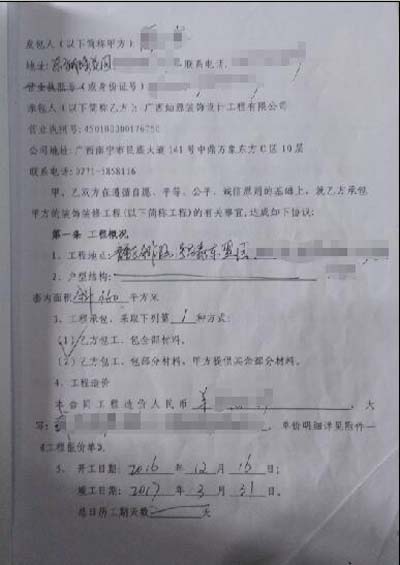 发包人（以下简称甲方）
地址: 联系电话:
营业执照号（或身份证号）
承包人（以下简称乙方）: 广西灿源装饰设计工程有限公司
营业执照号: 450103300176758
公司地址: 广西南宁市民族大道141号中鼎万象东方C区10层
联系电话: 0771-5858116
甲、乙双方在遵循自愿、平等、公平、诚信原则的基础上，就乙方承包
甲方的装饰装修工程(以下简称工程)的有关事宜, 达成如下协议:
第一条 工程概况
1、工程地点:
2、户型结构:
套内面积 平方米
3、工程承包，采取下列第 1 种方式:
(1) 乙方包工、包全部材料。
(2) 乙方包工、包部分材料，甲方提供其余部分材料。
4、工程造价
本合同工程造价人民币 大
写: 单价明细详见附件一
《工程报价单》。
5、开工日期: 2016 年 12 月 16 日;
竣工日期: 2017 年 3 月 31 日。
总日历工期天数 天